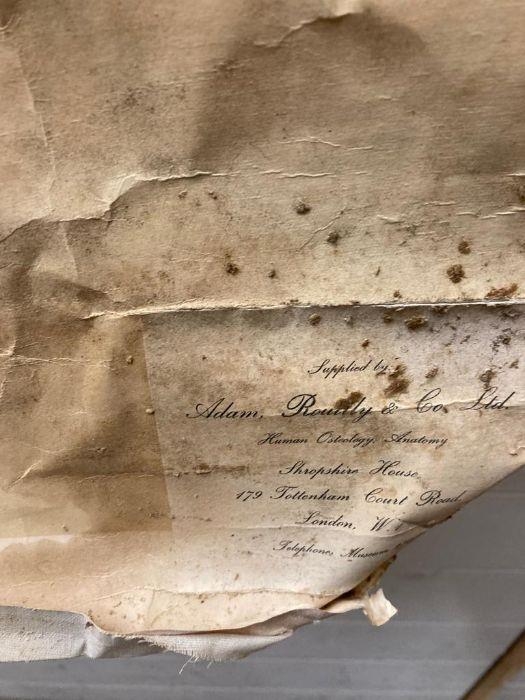 Supplied by:
Adam, Rouilly & Co. Ltd.
Human Osteology, Anatomy
Shropshire House,
179 Tottenham Court Road
London, W
Telephone, Museum